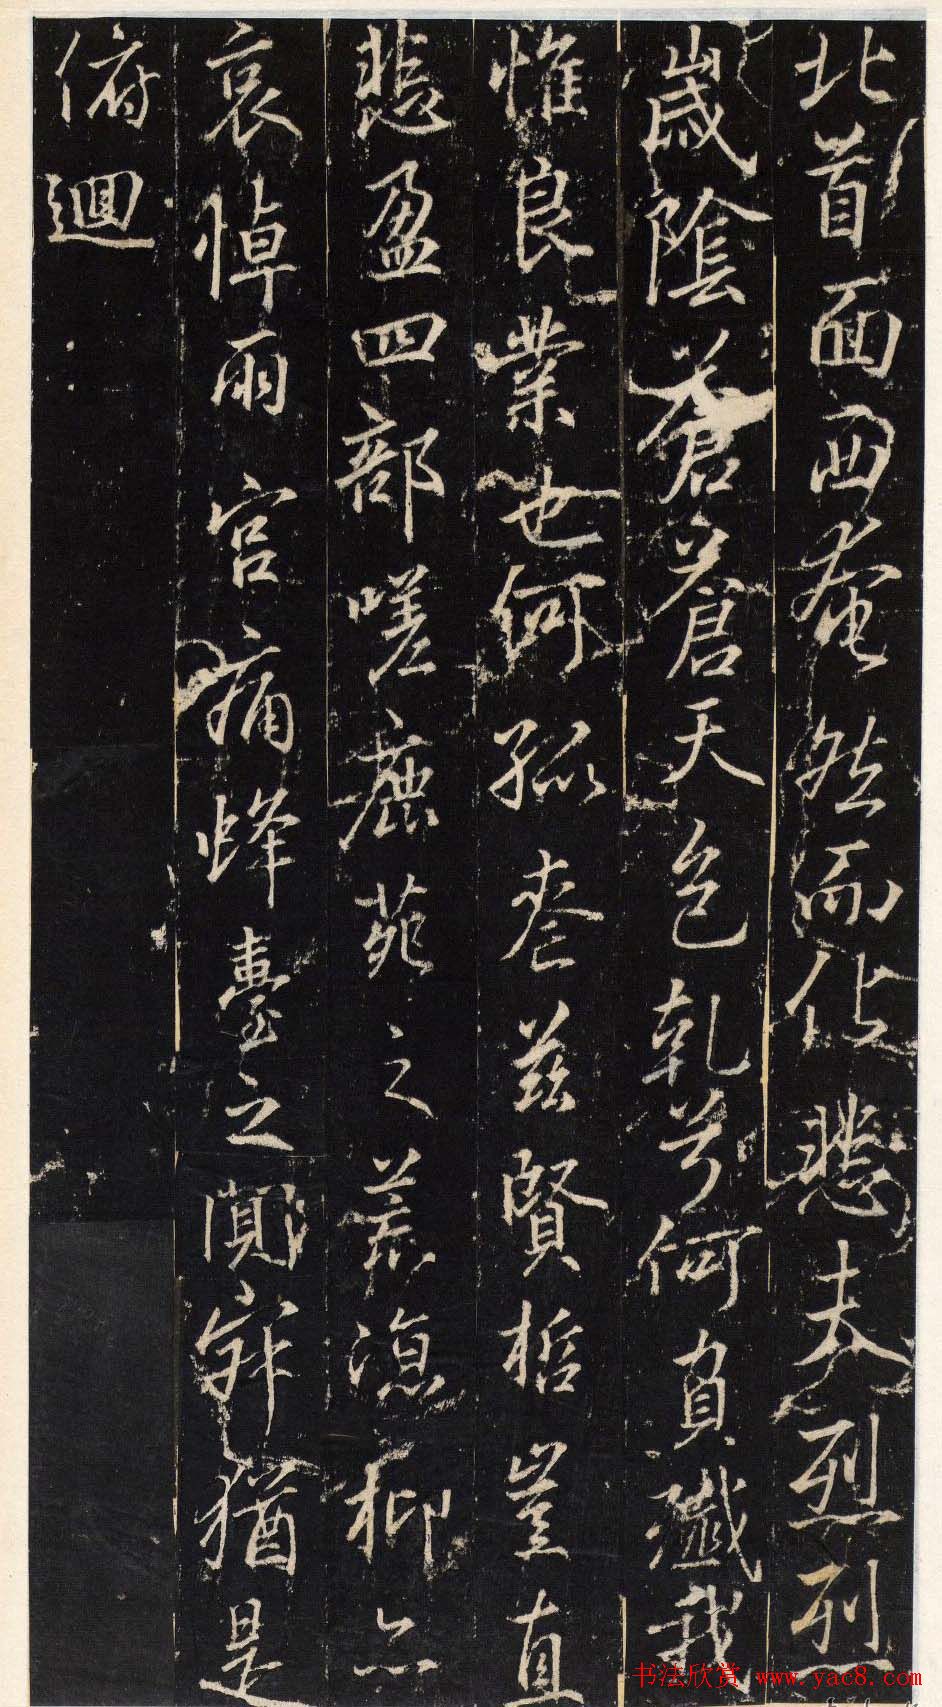 北首面西奄然而化悲夫烈烈
歲陰蒼蒼天色乾兮何負殲我
惟良業也何孤茲賢哲豈直
悲盈四部嗟鹿苑之荒涼抑亦
哀悼兩宮痛蜂臺之闃寂猶是
俯迴
书法欣赏 www.yac8.com